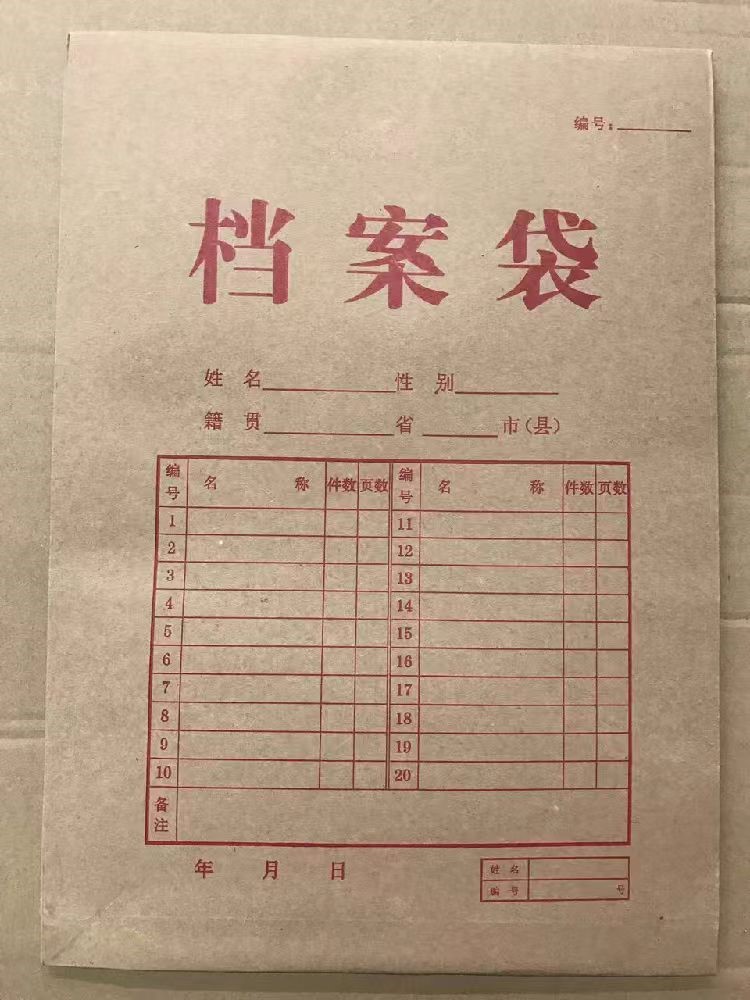 编号:
档案袋
姓 名 性 别
籍 贯 省 市(县)
编号 名 称 件数 页数 编号 名 称 件数 页数
1 11
2 12
3 13
4 14
5 15
6 16
7 17
8 18
9 19
10 20
备注
年 月 日
姓 名
编 号 号